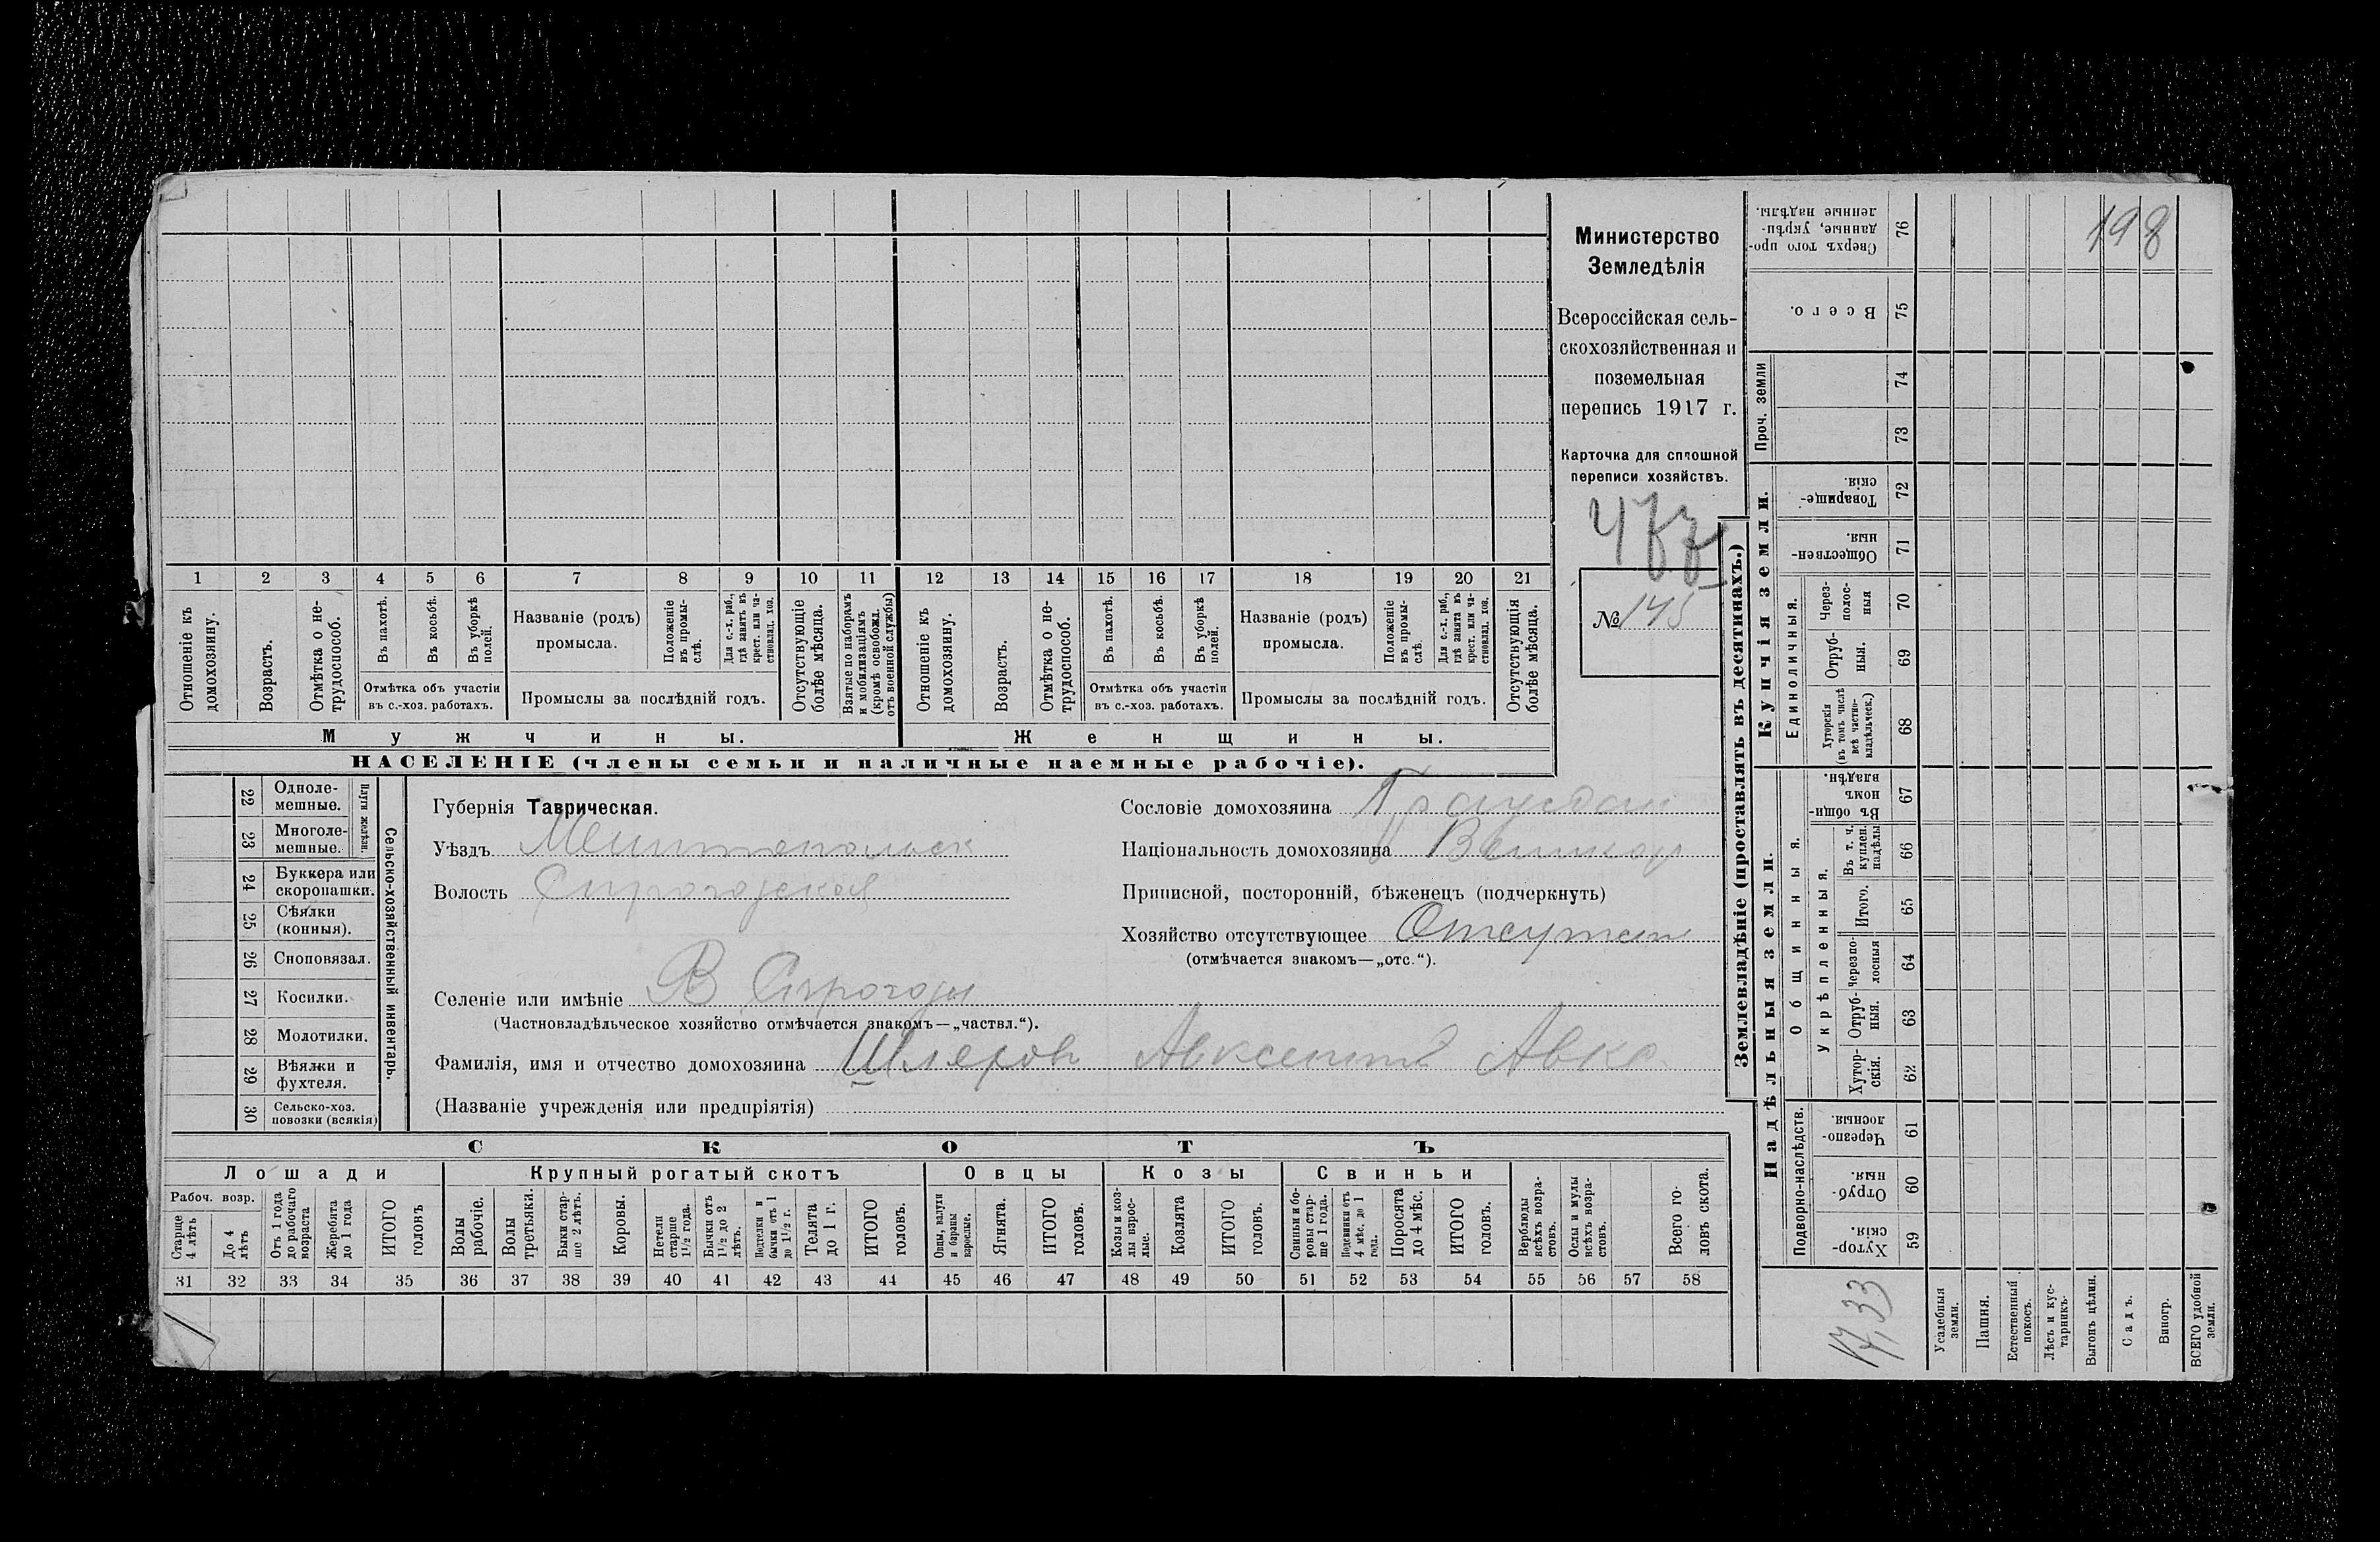 198
Министерство
Земледѣлія
Всероссійская сель-
скохозяйственная и
поземельная
перепись 1917 г.
Карточка для сплошной
переписи хозяйствъ.
№ 145
1 2 3 4 5 6 7 8 9 10 11 12 13 14 15 16 17 18 19 20 21
Отношеніе къ домохозяину.
Возрастъ.
Отмѣтка о не-трудоспособ.
Въ пахотѣ.
Въ косьбѣ.
Въ уборкѣ полей.
Отмѣтка объ участіи
въ с.-хоз. работахъ.
Названіе (родъ)
промысла.
Положеніе въ промы-слѣ.
Для с.-х. раб., гдѣ занятъ въ крест. или ча-стновлад. хоз.
Промыслы за послѣдній годъ.
Отсутствующіе болѣе мѣсяца.
Взятые по наборамъ и мобилизаціямъ (кромѣ освобожд. отъ военной службы)
Отношеніе къ домохозяину.
Возрастъ.
Отмѣтка о не-трудоспособ.
Въ пахотѣ.
Въ косьбѣ.
Въ уборкѣ полей.
Отмѣтка объ участіи
въ с.-хоз. работахъ.
Названіе (родъ)
промысла.
Положеніе въ промы-слѣ.
Для с.-х. раб., гдѣ занята въ крест. или ча-стновлад. хоз.
Промыслы за послѣдній годъ.
Отсутствующія болѣе мѣсяца.
Мужчины.
Женщины.
НАСЕЛЕНІЕ (члены семьи и наличные наемные рабочіе).
22 Одноле-мешные.
23 Многоле-мешные.
Плуги желѣзн.
24 Буккера или скоропашки.
25 Сѣялки (конныя).
26 Сноповязал.
27 Косилки.
28 Молотилки.
29 Вѣялки и фухтеля.
30 Сельско-хоз. повозки (всякія)
Сельско-хозяйственный инвентарь.
Губернія Таврическая.
Уѣздъ Мелитопольск
Волость Сирогозская
Сословіе домохозяина
Національность домохозяина Великор
Приписной, посторонній, бѣженецъ (подчеркнуть)
Хозяйство отсутствующее Отсутств
(отмѣчается знакомъ—„отс.“).
Селеніе или имѣніе В Сирогозы
(Частновладѣльческое хозяйство отмѣчается знакомъ—„частвл.“).
Фамилія, имя и отчество домохозяина Шляхов Авксентий Авкс
(Названіе учрежденія или предпріятія)
СКОТЪ
Лошади
Крупный рогатый скотъ
Овцы
Козы
Свиньи
Рабоч. возр.
Старше 4 лѣтъ
До 4 лѣтъ
Отъ 1 года до рабочаго возраста
Жеребята до 1 года
ИТОГО головъ
Волы рабочіе.
Волы третьяки.
Быки стар-ше 2 лѣтъ.
Коровы.
Нетели старше 1½ года.
Бычки отъ 1½ до 2 лѣтъ.
Подтелки и бычки отъ 1 до 1½ г.
Телята до 1 г.
ИТОГО головъ.
Овцы, валухи и бараны взрослые.
Ягнята.
ИТОГО головъ.
Козы и коз-лы взрос-лые.
Козлята
ИТОГО головъ.
Свиньи и бо-ровы стар-ше 1 года.
Подсвинки отъ 4 мѣс. до 1 года.
Поросята до 4 мѣс.
ИТОГО головъ.
Верблюды всѣхъ возра-стовъ.
Ослы и мулы всѣхъ возра-стовъ.
Всего го-ловъ скота.
31 32 33 34 35 36 37 38 39 40 41 42 43 44 45 46 47 48 49 50 51 52 53 54 55 56 57 58
Землевладѣніе (проставлять въ десятинахъ.)
Купчія земли.
Надѣльныя земли.
Сверхъ того про-данные, укрѣп-ленные надѣлы. 76
Всего. 75
Проч. земли
74
73
Товарище-скія. 72
Обществен-ныя. 71
Единоличныя.
Через-полос-ныя 70
Отруб-ныя. 69
Хуторскія (въ томъ числѣ всѣ частно-владѣльческ.) 68
Общинныя.
Въ общин-номъ владѣн. 67
Укрѣпленныя.
Въ т. ч. куплен. надѣлы 66
Итого. 65
черезпо-лосныя 64
Отруб-ныя. 63
Хутор-скія. 62
Подворно-наслѣдств.
Черезпо-лосныя. 61
Отруб-ныя. 60
Хутор-скія. 59
17,33
Усадебныя земли.
Пашня.
Естественный покосъ.
Лѣсъ и кус-тарникъ.
Выгонъ цѣлин.
Садъ.
Виногр.
ВСЕГО удобной земли.